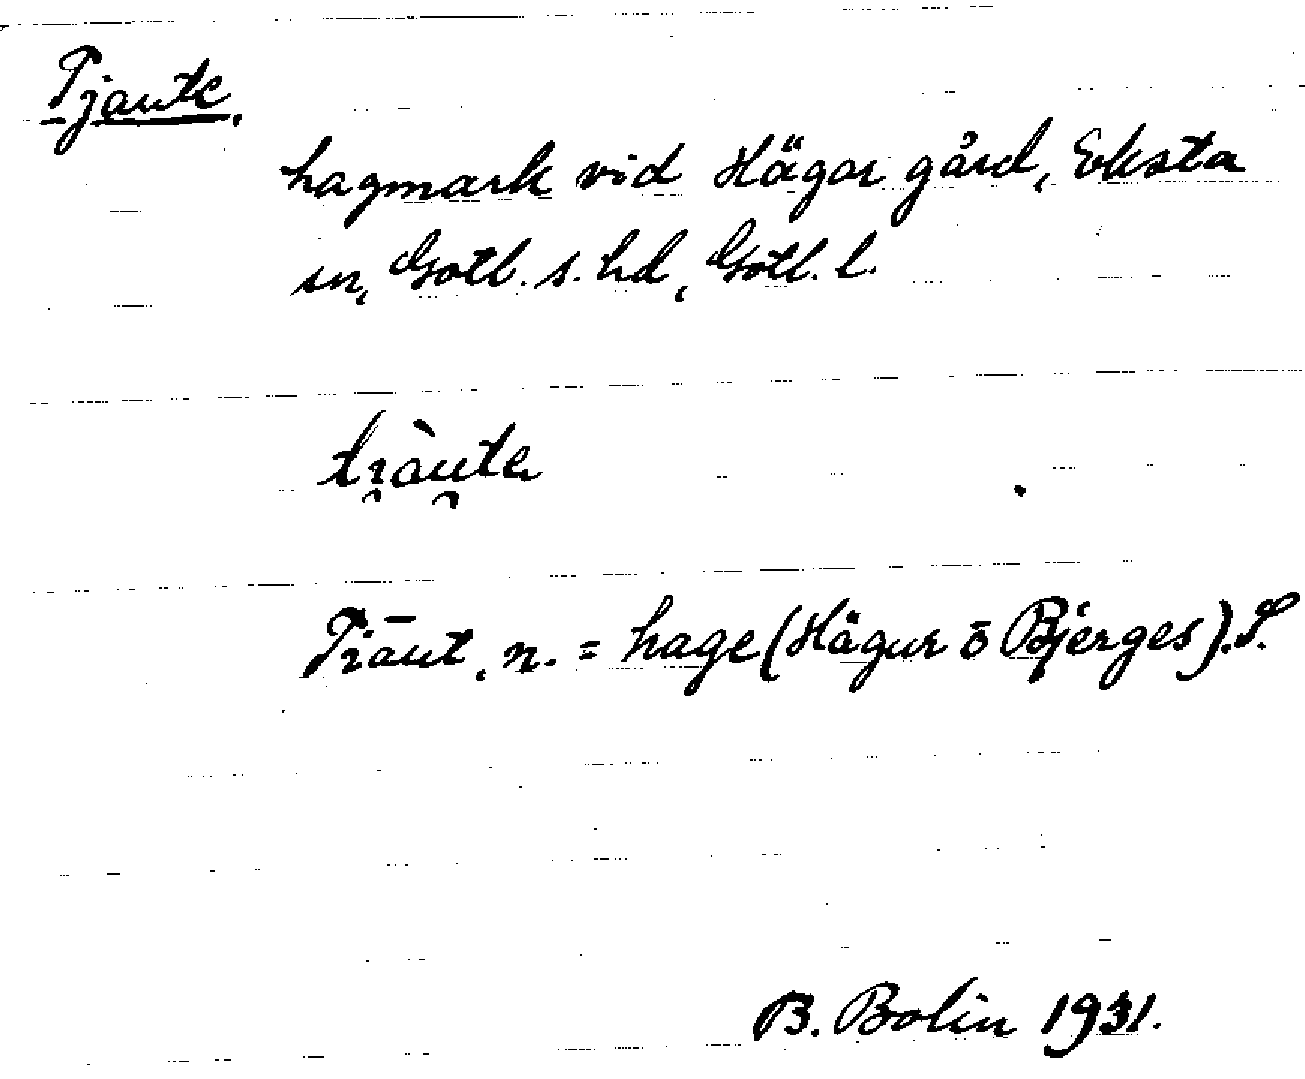 Tjaute.
hagmark vid Hägor gård, Eksta
sn, Gotl. s. hd, Gotl. l.
tı̯àu̯tɐ
Tiāut, n. = hage (Hägur ō Bjerges). S.
B. Bolin 1931.